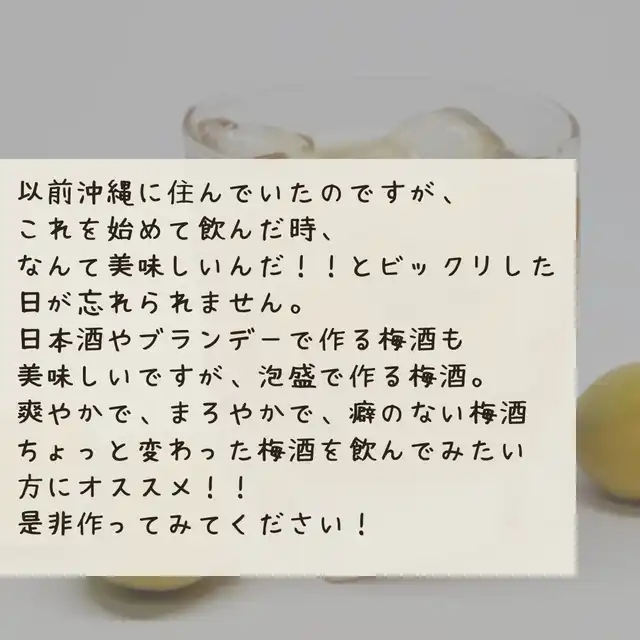 以前沖縄に住んでいたのですが、
これを始めて飲んだ時、
なんて美味しいんだ！！とビックリした
日が忘れられません。
日本酒やブランデーで作る梅酒も
美味しいですが、泡盛で作る梅酒。
爽やかで、まろやかで、癖のない梅酒
ちょっと変わった梅酒を飲んでみたい
方にオススメ！！
是非作ってみてください！